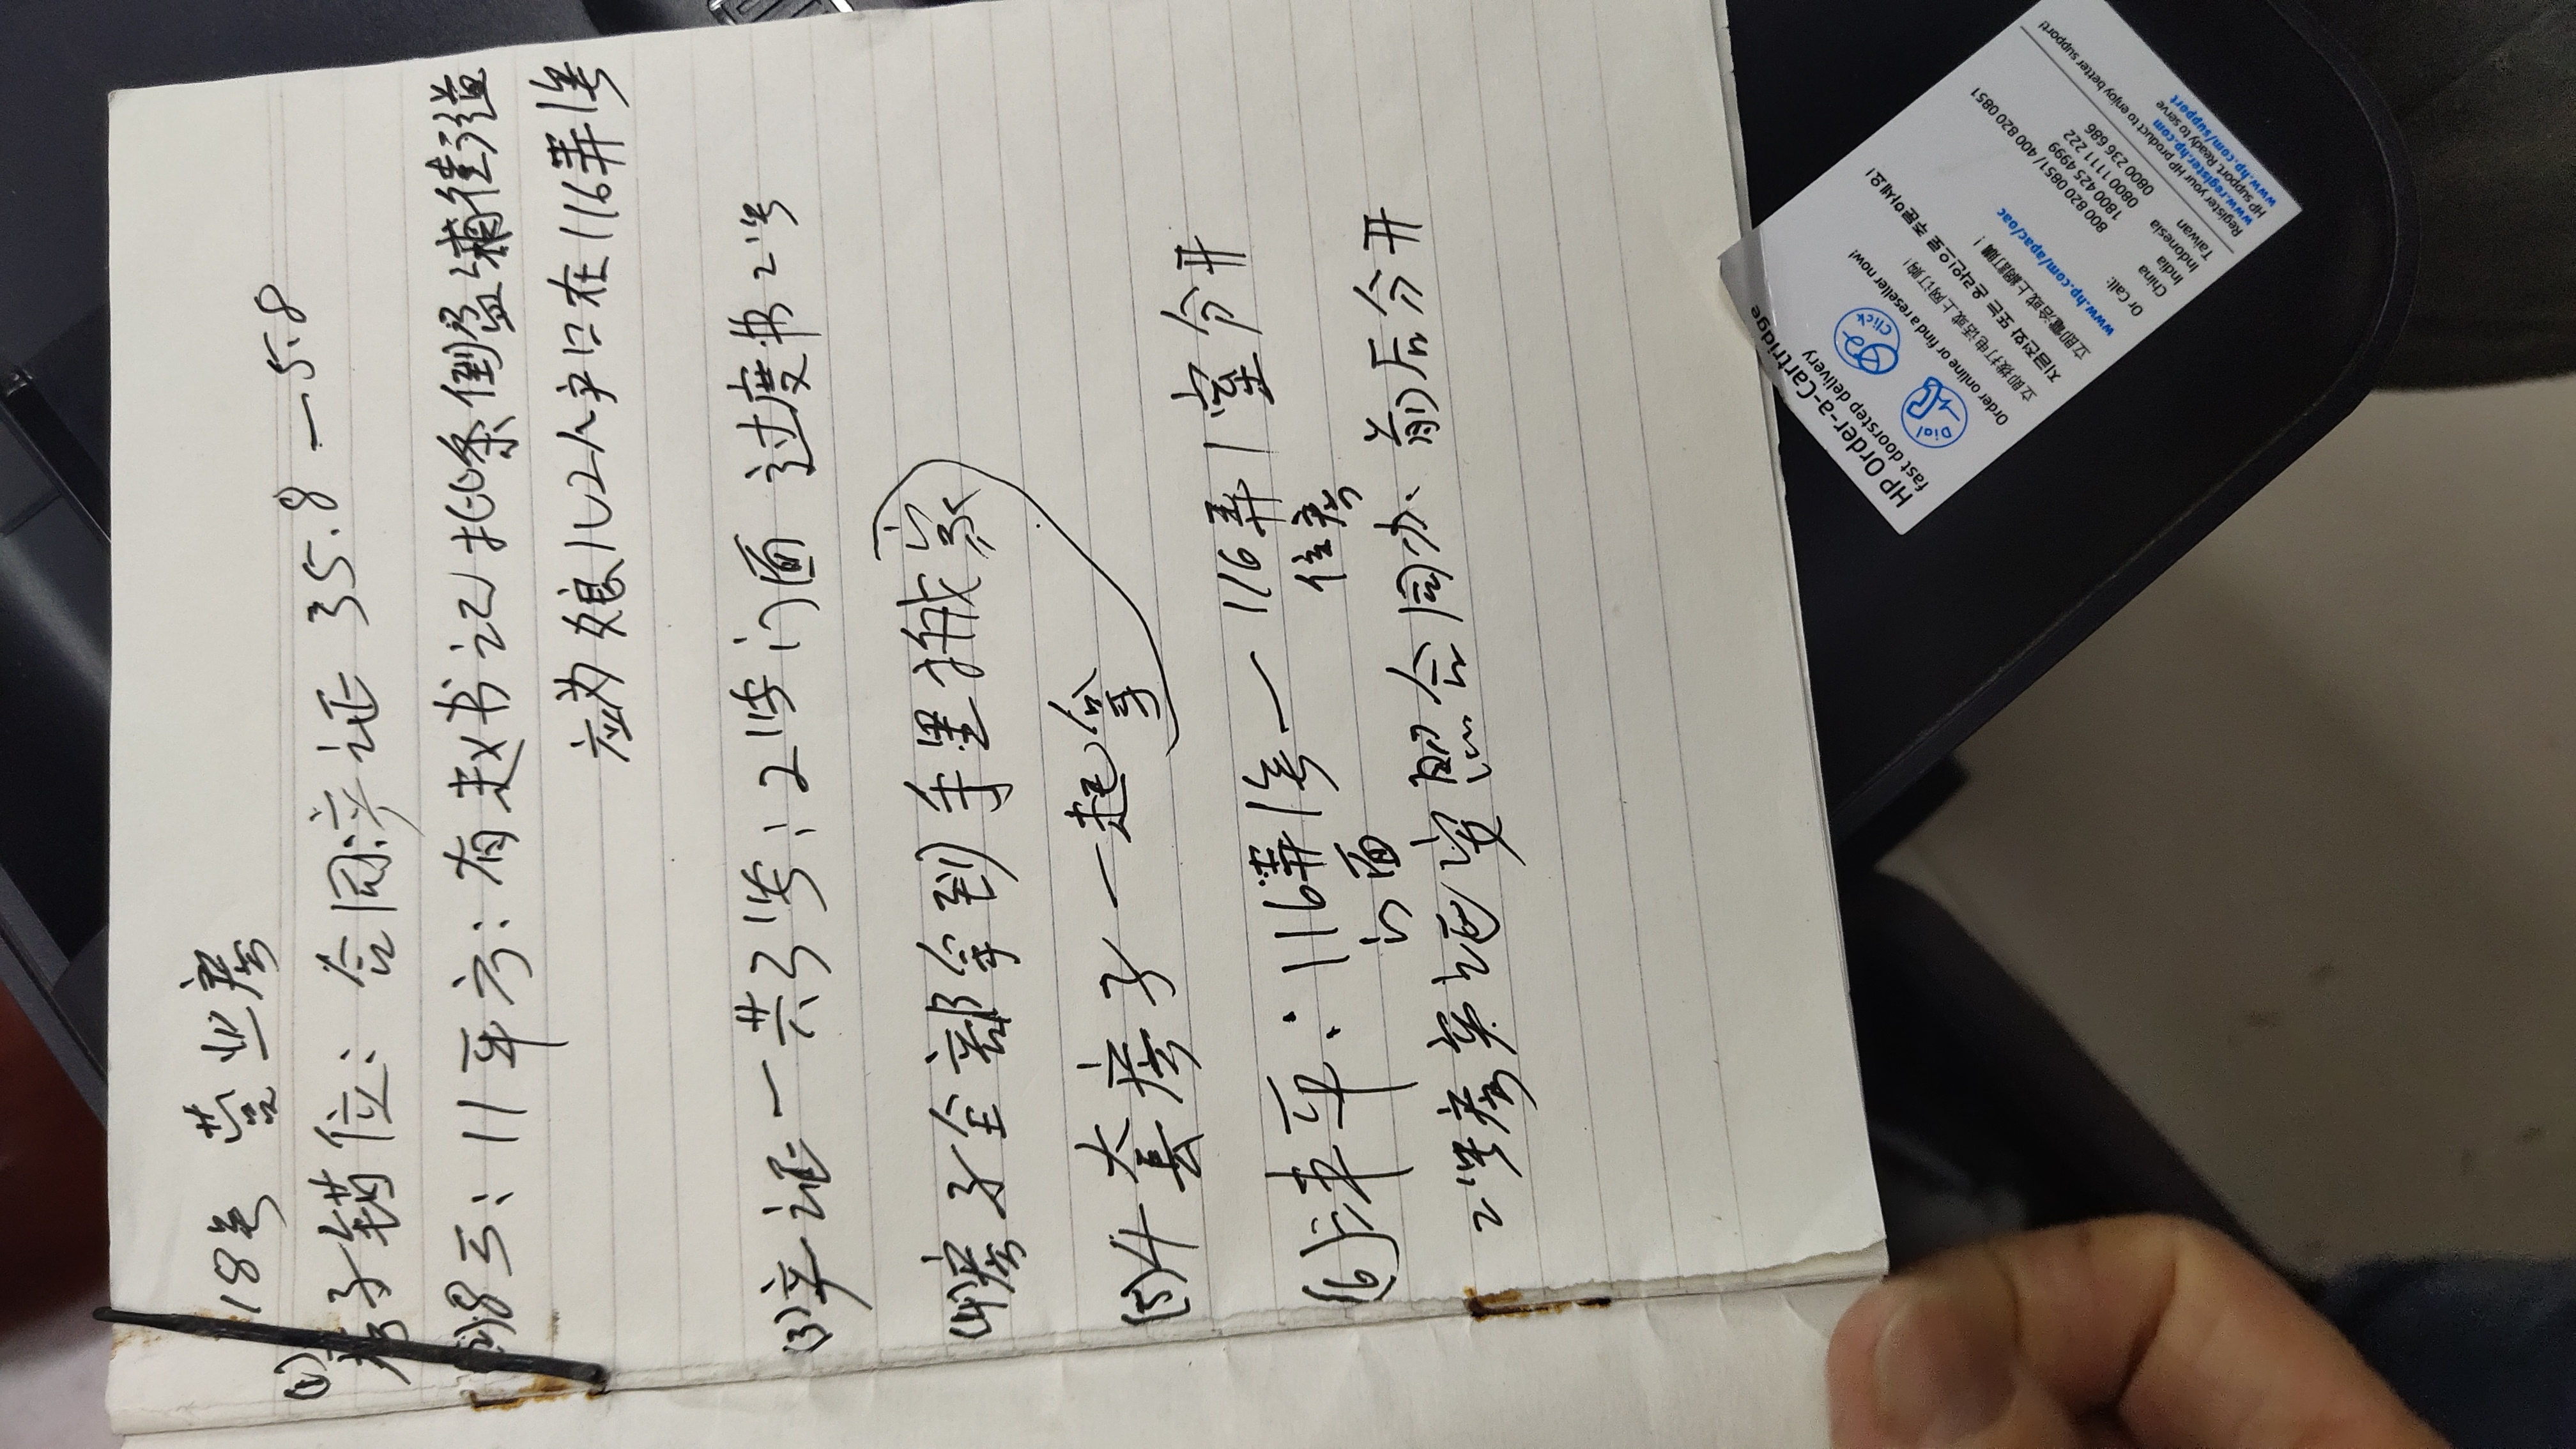 18号 营业房
(1)房子错位：合同产证 35.8 — 5.8
(2)8万：11平方：有赵书记批条倒盈浦街道
应为娘儿2人户口在116弄1号
(3)产证一共3张；2张门面 过度书2张
(4)房子全部拿到手里搬家
(5)4套房子一起拿
(6)沣平：116弄1号— 116弄1室分开
门面 住房
2张房产证安照合同办、前后分开
HP Order-a-Cartridge
fast doorstep delivery
Dial
Click
Order online or find a reseller now!
立即拨打电话或上网订购!
지금전화 또는 온라인으로 주문하세요!
立即電洽或上網訂購！
www.hp.com/apac/oac
Or Call:
China 800 820 0851/ 400 820 0851
India 1800 425 4999
Indonesia 0800 1111 222
Taiwan 0800 236 686
Register your HP product to enjoy better support!
www.register.hp.com
HP support. Ready to serve
www.hp.com/support